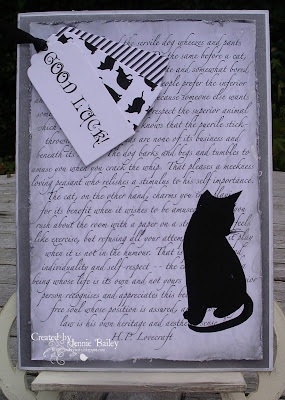 GOOD LUCK!
the servile dog wheezes and pants
the same before a cat,
and somewhat bored
people prefer the inferior
because someone else wants
respect the superior animal
knows that the puerile stick-
are none of its business and
beneath its The dog barks and begs and tumbles to
amuse you when you crack the whip. That pleases a meekness
loving peasant who relishes a stimulus to his self importance.
The cat, on the other hand, charms you
for its benefit when it wishes to be amused
rush about the room with a paper on a string feels
like exercise, but refusing all your attem play
when it is not in the humour. That is
individuality and self-respect -- the c
being whose life is its own and not yours
person recognises and appreciates this be
free soul whose position is assured
law is his own heritage and aesthe
H.P. Lovecraft
Created by
Jennie Bailey